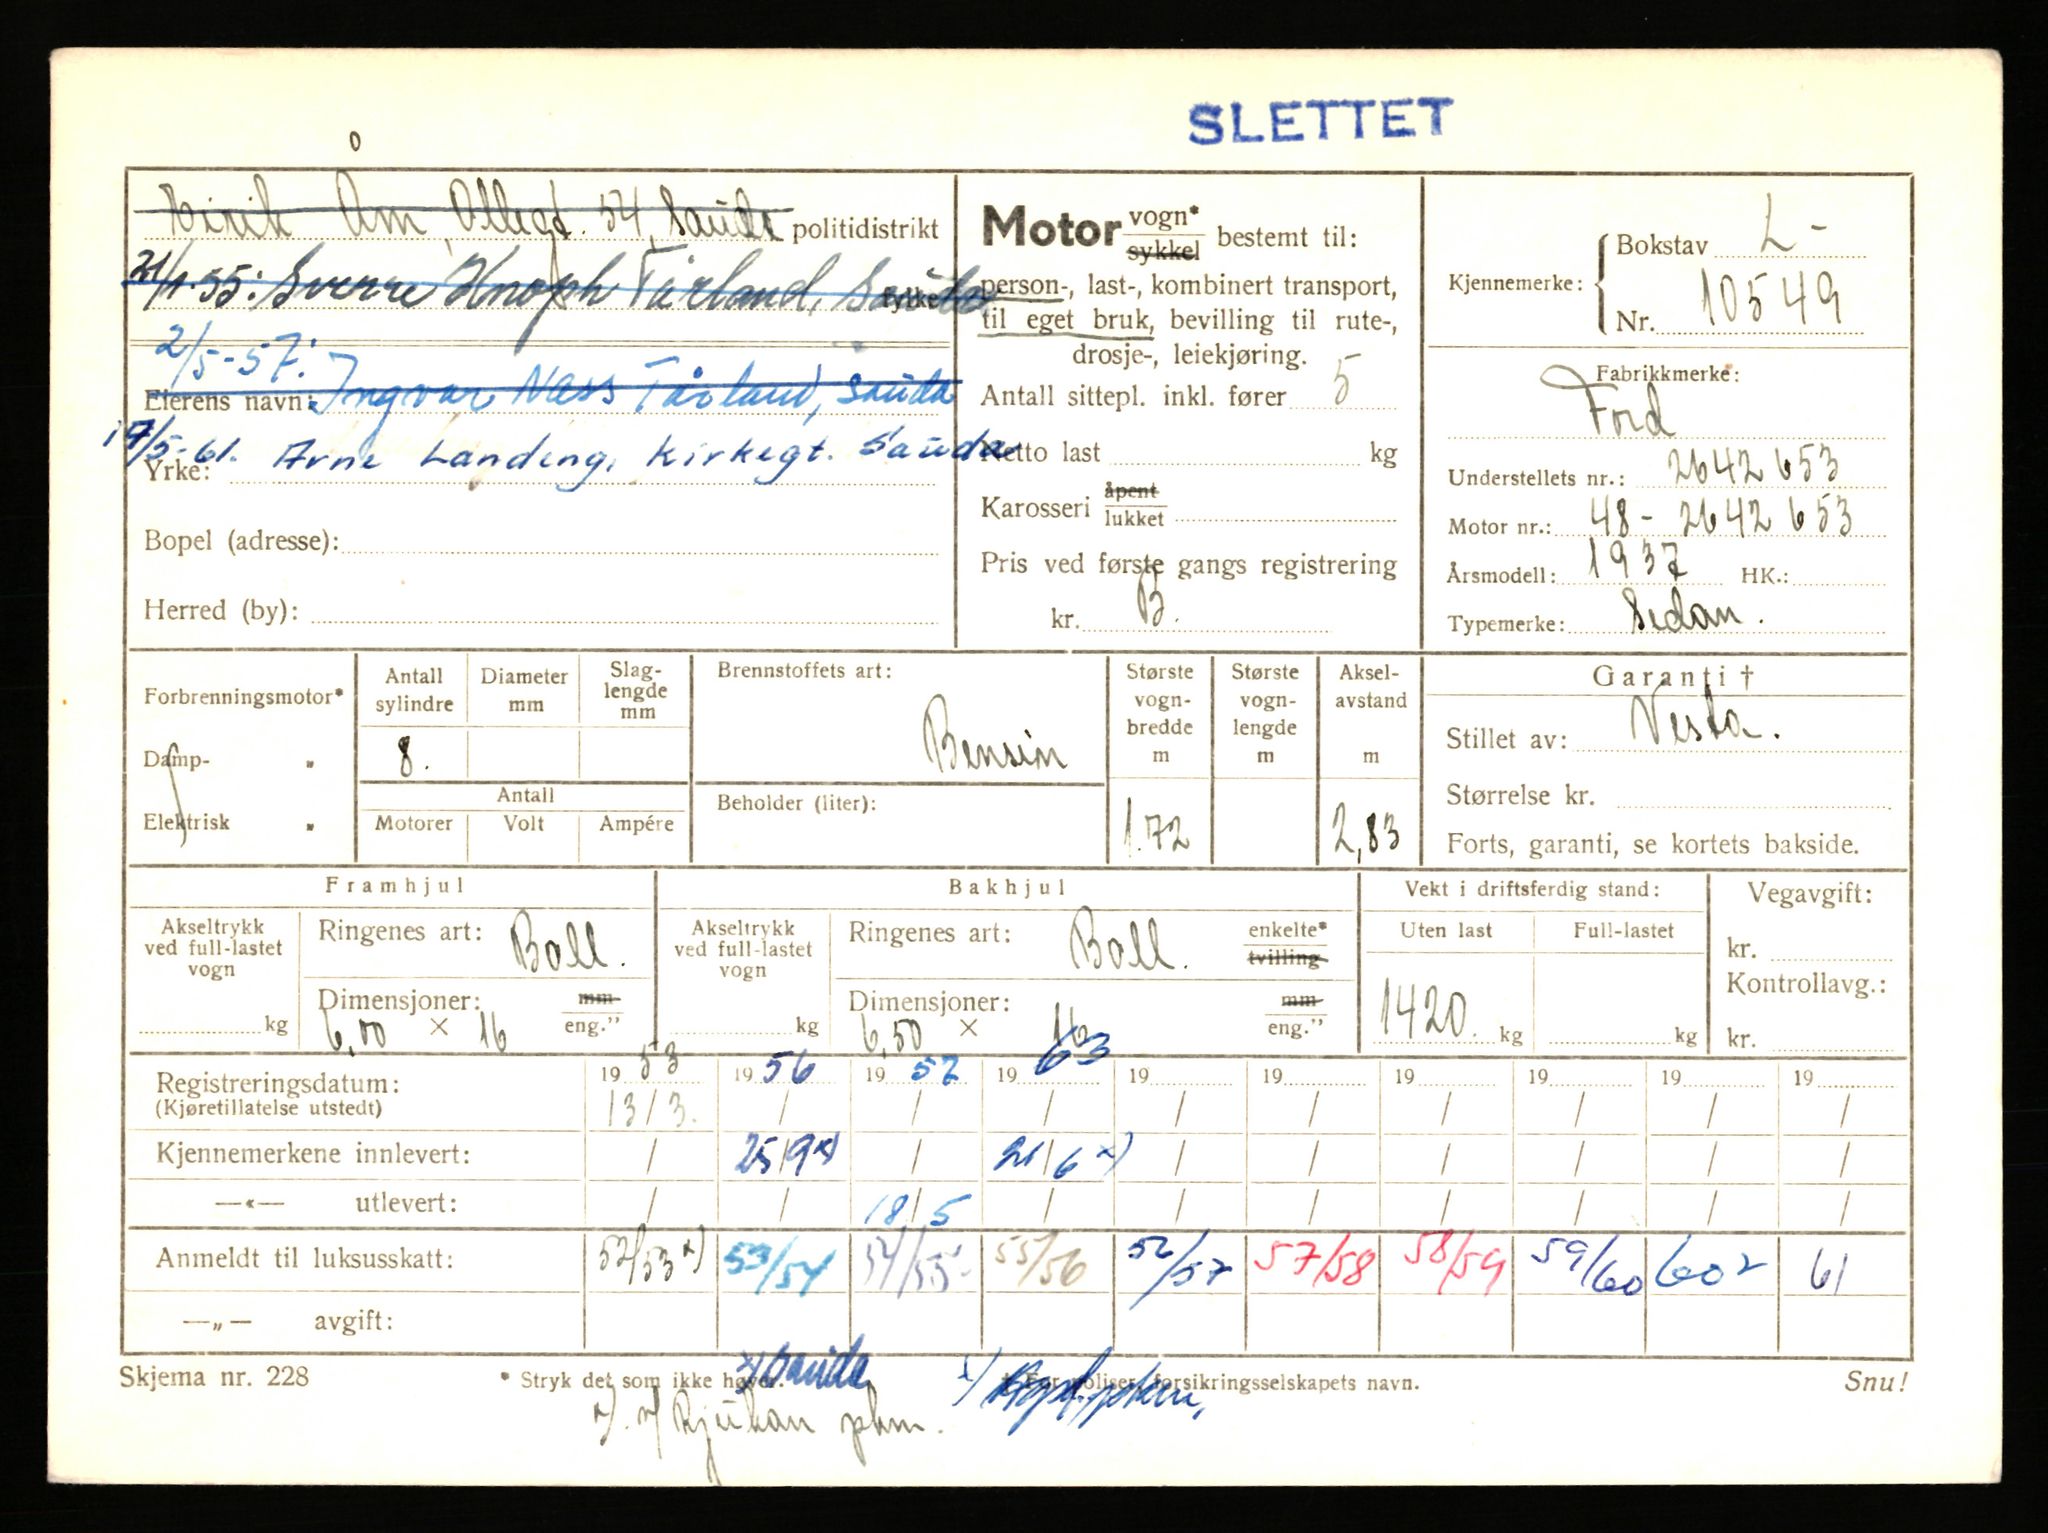 SLETTET
Å
Eirik Åm, Allegt. 54, Sauda politidistrikt
21/1-55: Sverre Knoph Fårland, Sauda fylke
2/5-57:
Eierens navn: Ingvar Næss Fårland, Sauda
17/5-61. Arne Landeng, Kirkegt. Sauda
Yrke:
Bopel (adresse):
Herred (by):
Motor vogn* sykkel bestemt til:
person-, last-, kombinert transport,
til eget bruk, bevilling til rute-,
drosje-, leiekjøring.
Antall sittepl. inkl. fører 5
Netto last kg
Karosseri åpent lukket
Pris ved første gangs registrering
kr. B.
Kjennemerke: Bokstav L-
Nr. 10549
Fabrikkmerke:
Ford
Understellets nr.: 2642653
Motor nr.: 48-2642653
Årsmodell: 1937 HK.:
Typemerke: Sedan.
Forbrenningsmotor*
Damp- „
Elektrisk „
Antall sylindre
8.
Diameter mm
Slag-lengde mm
Antall
Motorer Volt Ampére
Brennstoffets art:
Bensin
Beholder (liter):
Største vogn-bredde m
1.72
Største vogn-lengde m
Aksel-avstand m
2,83
Garanti †
Stillet av: Vesta.
Størrelse kr.
Forts, garanti, se kortets bakside.
Framhjul
Akseltrykk ved full-lastet vogn
kg
Ringenes art: Ball.
Dimensjoner: mm
6,00 × 16 eng.”
Bakhjul
Akseltrykk ved full-lastet vogn
kg
Ringenes art: Ball. enkelte* tvilling
Dimensjoner: mm
6,50 × 16 eng.”
Vekt i driftsferdig stand:
Uten last Full-lastet
1420. kg kg
Vegavgift:
kr.
Kontrollavg.:
kr.
Registreringsdatum: 19 53 19 56 19 57 19 63 19 19 19 19 19 19
(Kjøretillatelse utstedt) 13/3. / / / / / / / / /
Kjennemerkene innlevert: / 25/9x) / 21/6 x) / / / / / /
—«— utlevert: / / 18/5 / / / / / / /
Anmeldt til luksusskatt: 52/53 x) 53/54 54/55 55/56 56/57 57/58 58/59 59/60 602 61
—„— avgift:
Skjema nr. 228 * Stryk det som ikke høver. x) Sauda † For poliser, forsikringsselskapets navn. Snu!
x). v/ Rjukan pkm.